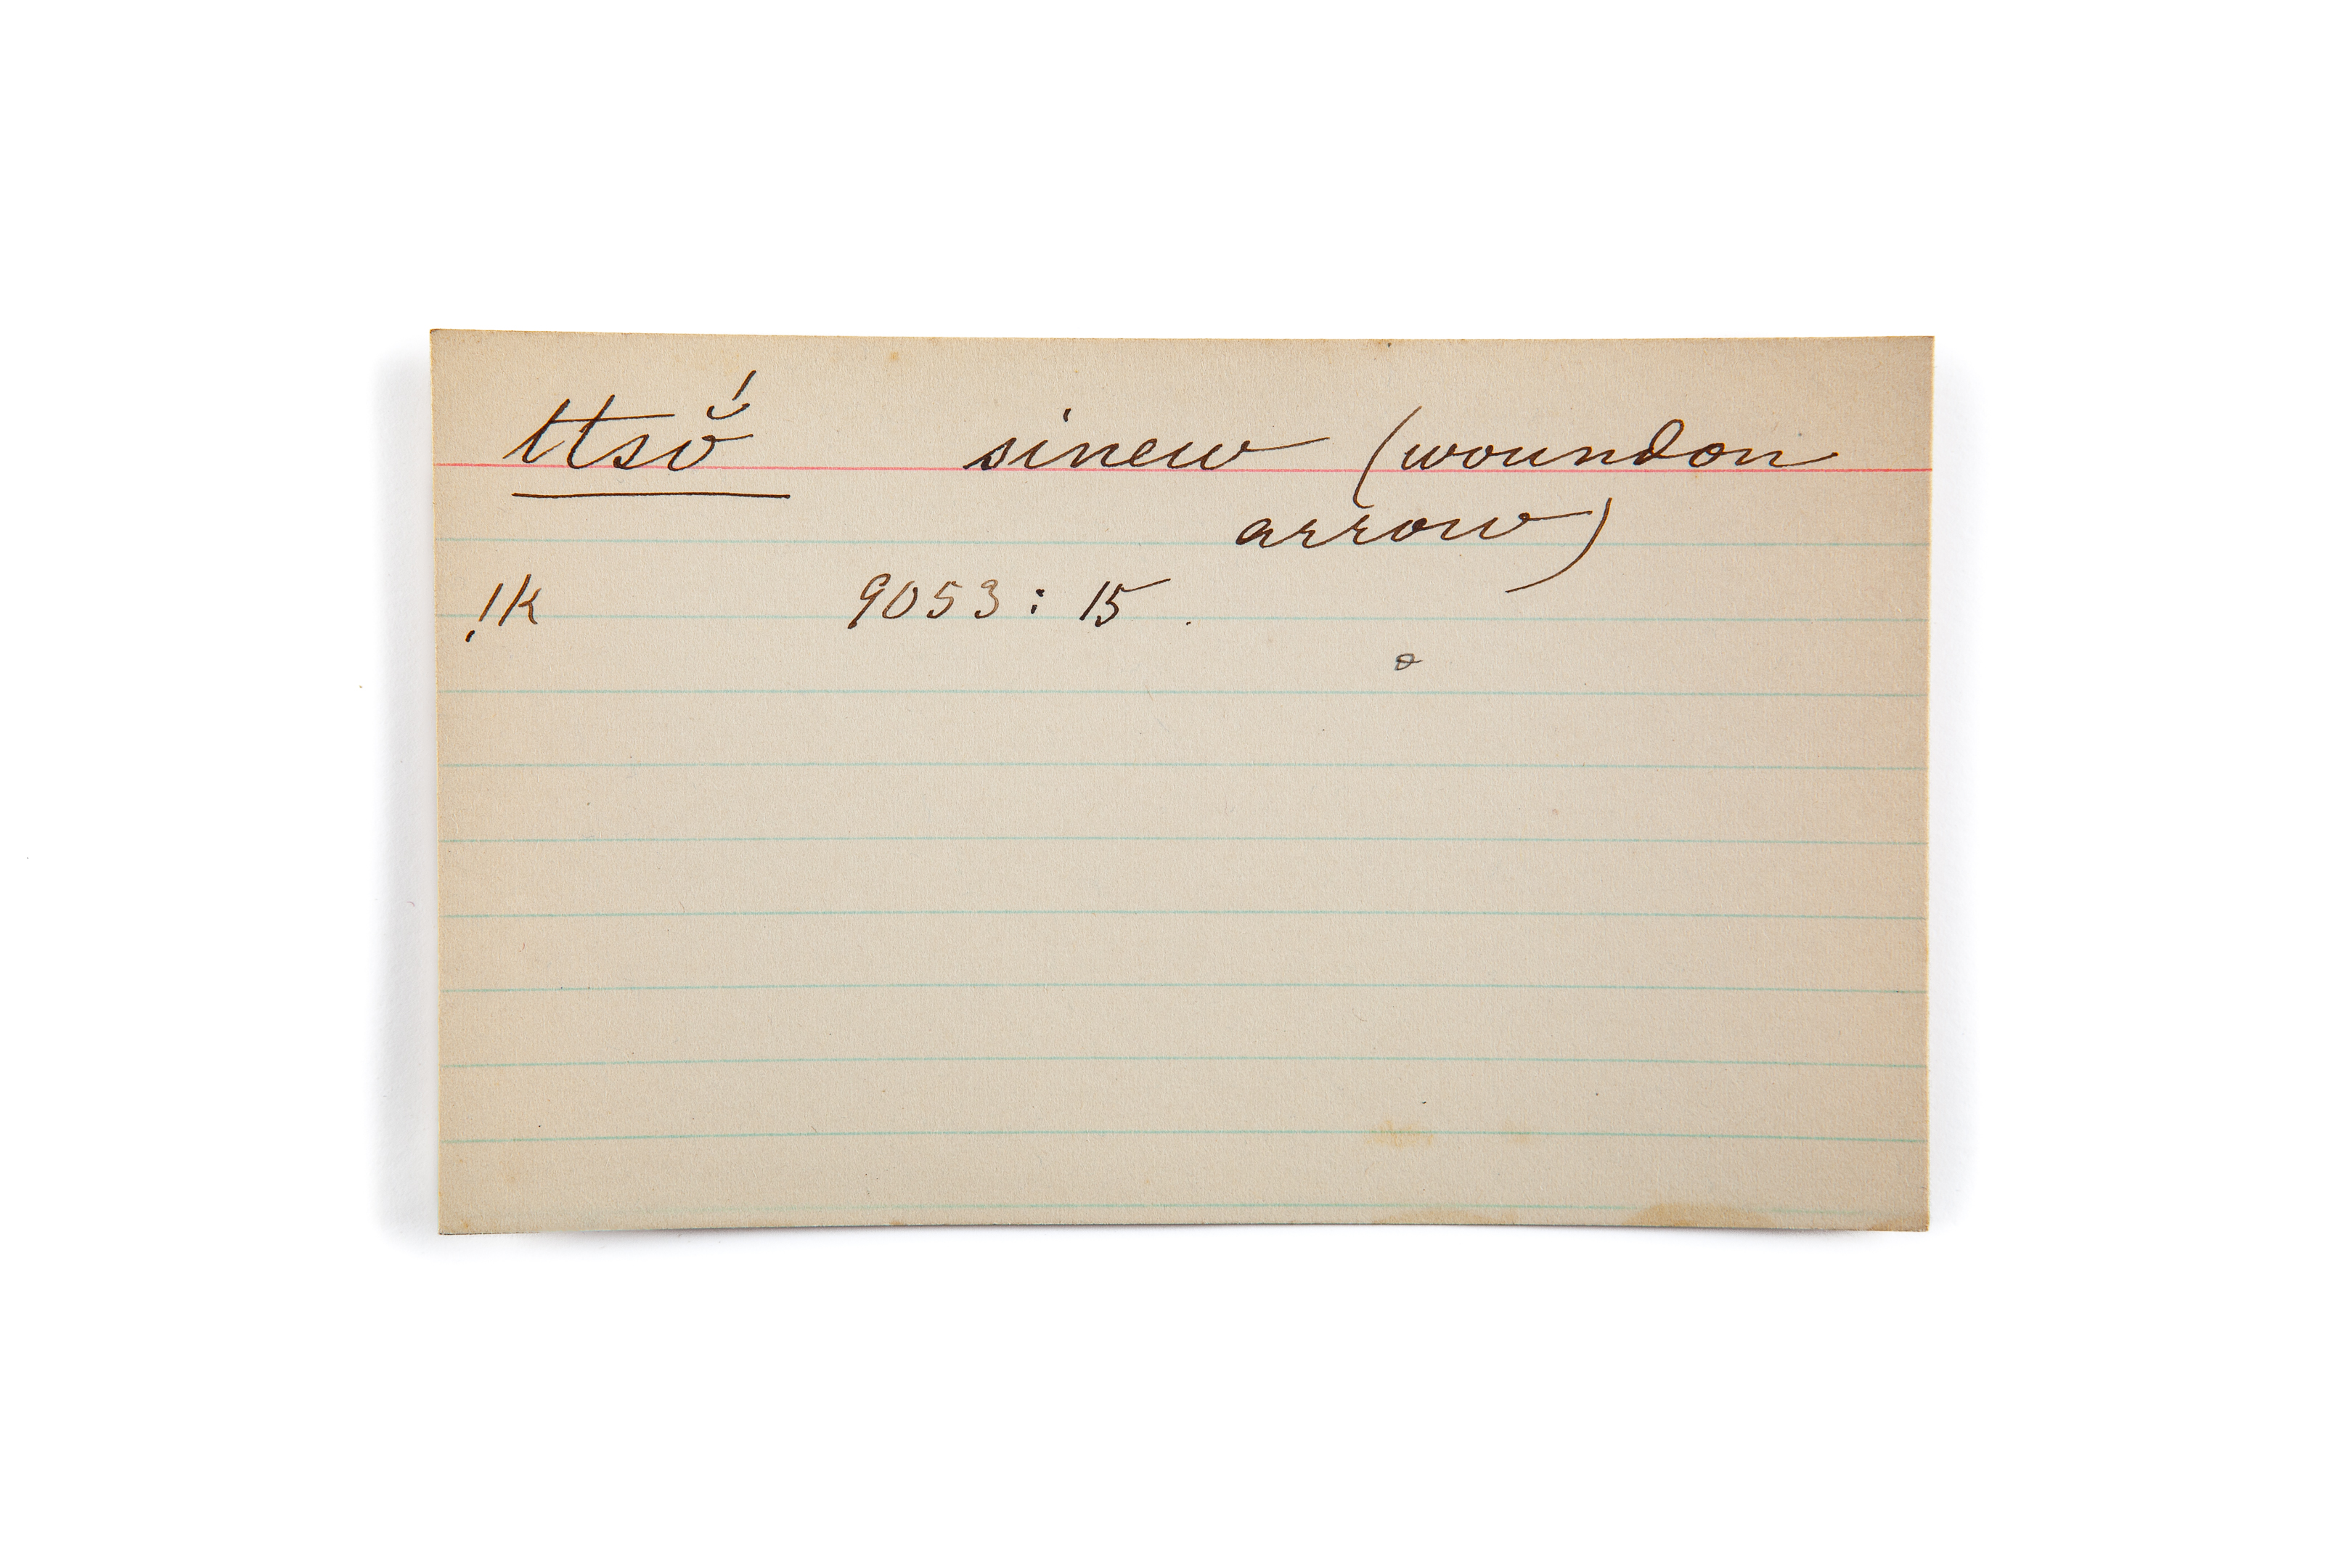 ttsŏ́ sinew (woundon
arrow)
!k 9053 : 15 .